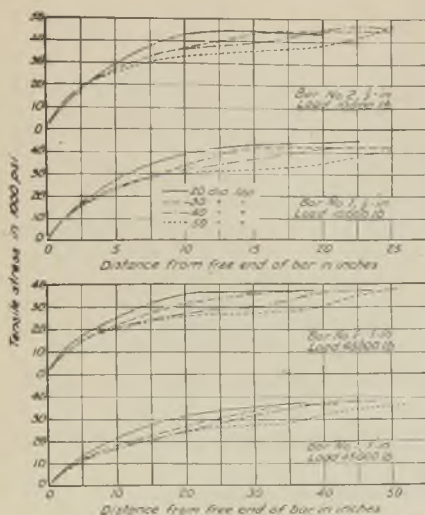 50
40
30
20
10
0
Bar No. 2, ½-in
Load 10000 lb
40
30
20
10
0
20 dia lap
30 " "
40 " "
50 " "
Bar No. 1, ½-in
Load 10000 lb
0 5 10 15 20 25
Distance from free end of bar in inches
Tensile stress in 1000 psi
40
30
20
10
0
Bar No. 2, 1-in
Load
30
20
10
0
Bar No. 1, 1-in
Load 45000 lb
0 10 20 30 40 50
Distance from free end of bar in inches